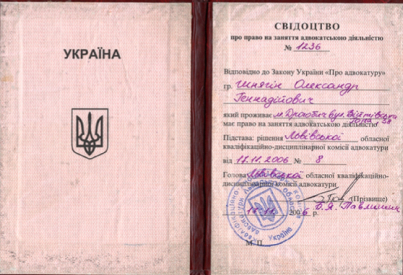 УКРАЇНА
СВІДОЦТВО
про право на заняття адвокатською діяльністю
№ 1236
Відповідно до Закону України «Про адвокатуру»
гр. Олександр
Геннадійович
який проживає м. Дрогобич вул.
має право на заняття адвокатською діяльністю
Підстава: рішення Львівської обласної
кваліфікаційно-дисциплінарної комісії адвокатури
від 2006 № 8
Голова Львівської обласної кваліфікаційно-
дисциплінарної комісії адвокатури
(Прізвище)
2006 р.
М. П.